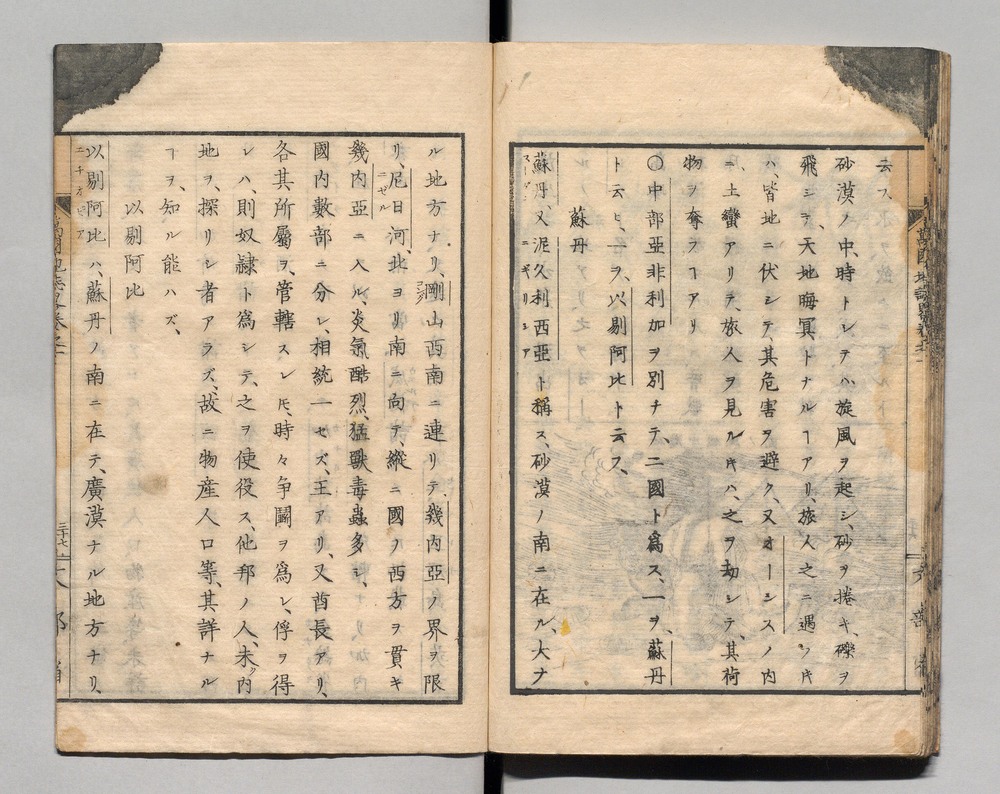 云フ
砂漠ノ中、時トシテハ、旋風ヲ起シ、砂ヲ捲キ、礫ヲ
飛シテ、天地晦冥トナルヿアリ、旅人之ニ遇フキ
ハ、皆地ニ伏シテ、其危害ヲ避ク、又オーシスノ内
ニ土蠻アリテ、旅人ヲ見ルキハ、之ヲ劫シテ、其荷
物ヲ奪フヿアリ
〇中部亞非利加ヲ別チテ、二國ト爲ス、一ヲ、蘇丹
ト云ヒ、一ヲ、以剔阿比ト云フ、
蘇丹
蘇丹、又泥久利西亞ト稱ス、砂漠ノ南ニ在ル、大ナ
スーダン ニギリシア
ル地方ナリ、剛山西南ニ連リテ、幾内亞ノ界ヲ限
リ、尼日河、北ヨリ南ニ向テ、縱ニ國ノ西方ヲ貫キ
ニゼル
幾内亞ニ入ル、炎氣酷烈、猛獸毒蟲多シ、
國内數部ニ分レ、相統一セズ、王アリ、又酋長アリ、
各其所屬ヲ、管轄スレ𪜈、時々争鬪ヲ爲シ、俘ヲ得
レハ、則奴隷ト爲シテ、之ヲ使役ス、他邦ノ人、未タ内
地ヲ、探リシ者アラズ、故ニ物産人口等、其詳ナル
ヿヲ、知ル能ハズ、
以剔阿比
以剔阿比ハ、蘇丹ノ南ニ在テ、廣漠ナル地方ナリ、
萬國地誌畧卷之二
二十七